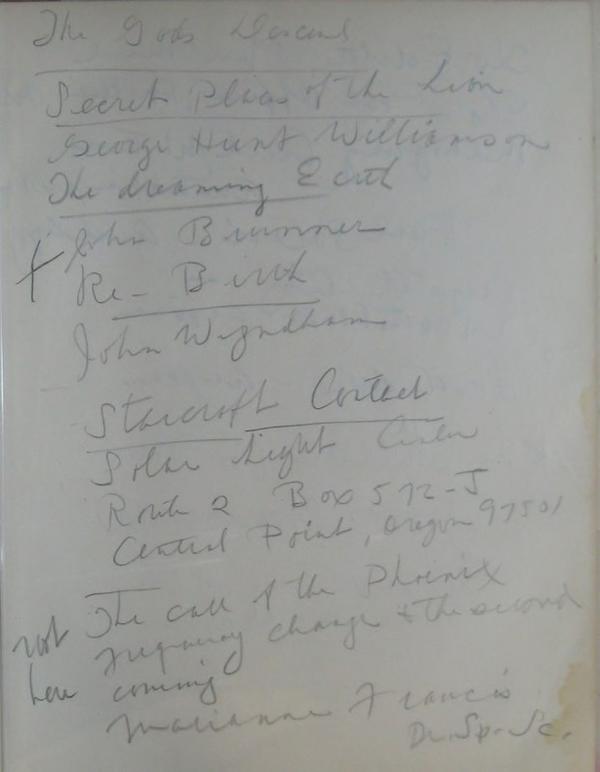 The Gods Descend
Secret Places of the Lion
George Hunt Williamson
The dreaming Earth
+ John Brunner
Re-Birth
John Wyndham
Starcraft Contact
Solar Light Center
Route 2 Box 572-J
Central Point, Oregon 97501
The call of the Phoenix
not frequency change & the second
here coming
Marianne Francis
Dr. Sp. Sc.